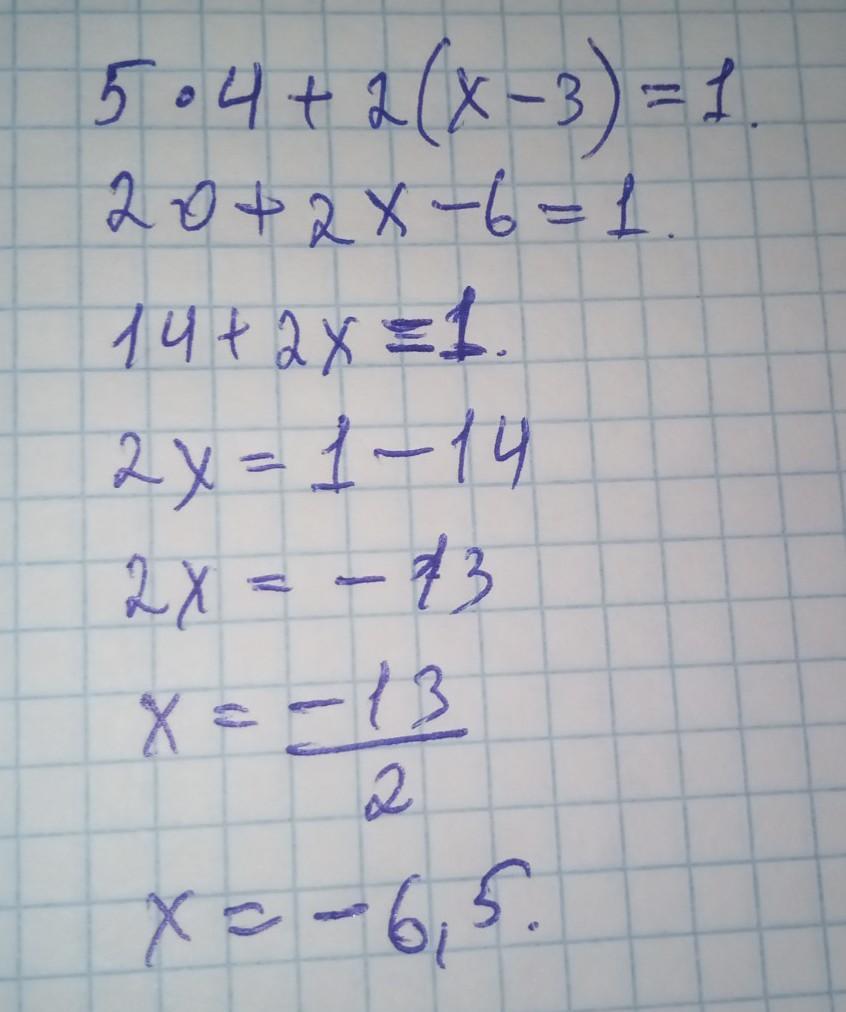 5 • 4 + 2(x - 3) = 1.
20 + 2x - 6 = 1.
14 + 2x = 1.
2x = 1 - 14
2x = - 13
x = -13/2
x = - 6,5.